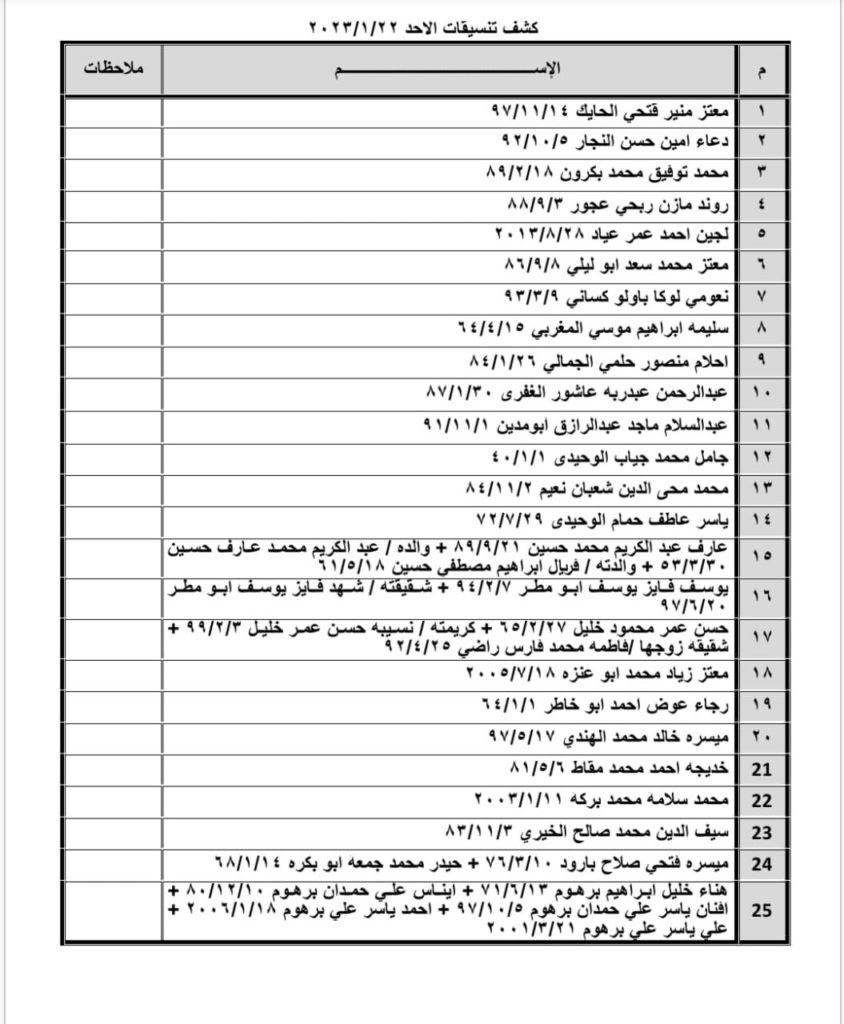 كشف تنسيقات الاحد ٢٠٢٣/١/٢٢
م الإســـــــــم ملاحظات
١ معتز منير فتحي الحايك ٩٧/١١/١٤
٢ دعاء امين حسن النجار ٩٢/١٠/٥
٣ محمد توفيق محمد بكرون ٨٩/٢/١٨
٤ روند مازن ربحي عجور ٨٨/٩/٣
٥ لجين احمد عمر عياد ٢٠١٣/٨/٢٨
٦ معتز محمد سعد ابو ليلي ٨٦/٩/٨
٧ نعومي لوكا باولو كساني ٩٣/٣/٩
٨ سليمه ابراهيم موسي المغربي ٦٤/٤/١٥
٩ احلام منصور حلمي الجمالي ٨٤/١/٢٦
١٠ عبدالرحمن عبدربه عاشور الغفرى ٨٧/١/٣٠
١١ عبدالسلام ماجد عبدالرازق ابومدين ٩١/١١/١
١٢ جامل محمد جياب الوحيدى ٤٠/١/١
١٣ محمد محى الدين شعبان نعيم ٨٤/١١/٢
١٤ ياسر عاطف حمام الوحيدى ٧٢/٧/٢٩
١٥ عارف عبد الكريم محمد حسين ٨٩/٩/٢١ + والده / عبد الكريم محمد عارف حسين
٥٣/٣/٣٠ + والدته / فريال ابراهيم مصطفي حسين ٦١/٥/١٨
١٦ يوسف فايز يوسف ابو مطر ٩٤/٢/٧ + شقيقته / شهد فايز يوسف ابو مطر
٩٧/٦/٢٠
١٧ حسن عمر محمود خليل ٦٥/٢/٢٧ + كريمته / نسيبه حسن عمر خليل ٩٩/٢/٣ +
شقيقه زوجها /فاطمه محمد فارس راضي ٩٢/٤/٢٥
١٨ معتز زياد محمد ابو عنزه ٢٠٠٥/٧/١٨
١٩ رجاء عوض احمد ابو خاطر ٦٤/١/١
٢٠ ميسره خالد محمد الهندي ٩٧/٥/١٧
21 خديجه احمد محمد مقاط ٨١/٥/٦
22 محمد سلامة محمد بركة ٢٠٠٣/١/١١
23 سيف الدين محمد صالح الخيري ٨٣/١١/٣
24 ميسره فتحي صلاح بارود ٧٦/٣/١٠ + حيدر محمد جمعه ابو بكره ٦٨/١/١٤
25 هناء خليل ابراهيم برهوم ٧١/٦/١٣ + ايناس علي حمدان برهوم ٨٠/١٢/١٠ +
افنان ياسر علي حمدان برهوم ٩٧/١٠/٥ + احمد ياسر علي برهوم ٢٠٠٦/١/١٨ +
علي ياسر علي برهوم ٢٠٠١/٣/٢١